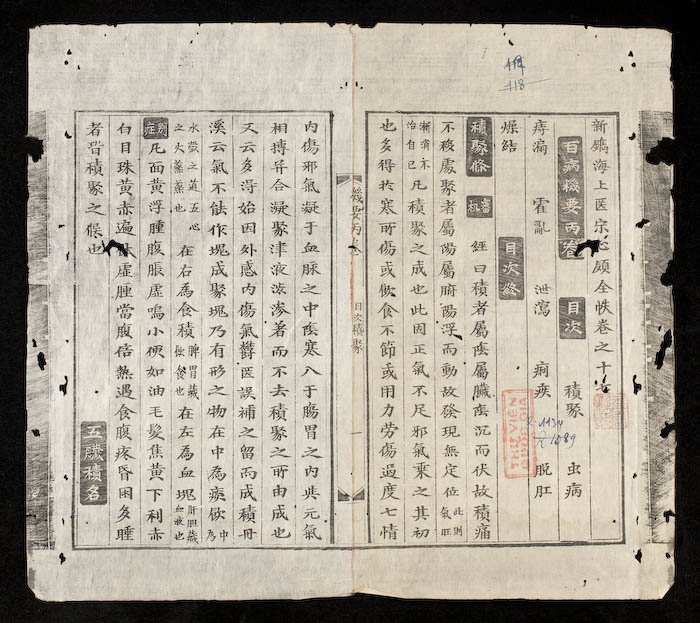 新鐫海上医宗心領全帙卷之十
百病機要丙卷 目次 積聚 虫病
痔漏 霍亂 泄瀉 痢疾 脱肛
燥結 目次終
積聚條 審机 経曰積者屬陰屬臟陰沉而伏故積痛
不移處聚者屬陽屬腑陽浮而動故發現無定位 此則氣旺
漸消不治自已 凡積聚之成也此因正氣不足邪氣乘之其初
也多得於寒所傷或飲食不節或用力劳傷過度七情
幾要丙卷 目次積聚 一
内傷邪氣凝于血脉之中陰寒入于腸胃之内與元氣
相搏并合凝聚津液滲着而不去積聚之所由成也
又云多淂始因外感内傷氣鬱医誤補之留而成積丹
溪云氣不能作塊成聚塊乃有形之物在中為痰飲 中為
水穀之道五心之火薰蒸也 在右為食積 脾胃藏飲食也 在左為血塊 肝胆藏血液也
別症 凡面黄浮腫腹脹虛鳴小便如油毛髮焦黄下利赤
白目珠黄赤遍体虛腫當腹倍热遇食腹疼昏困多睡
者皆積聚之候也 五臓積名
THƯ VIỆN
QUỐC GIA
1089
118